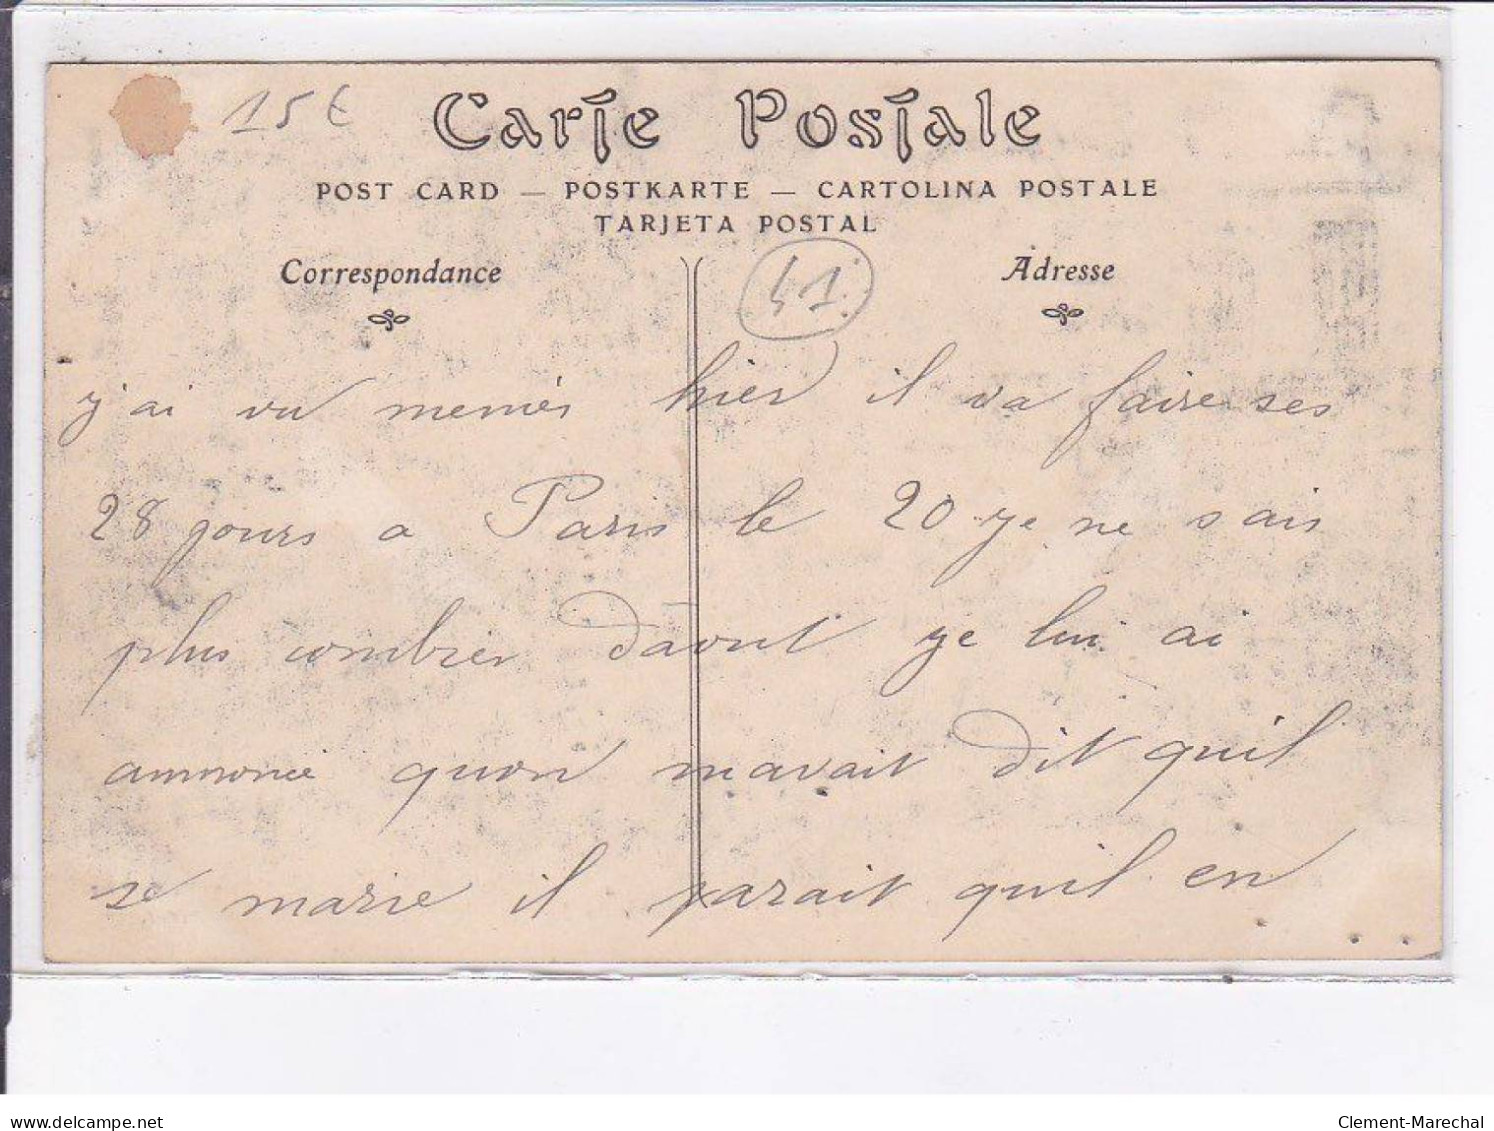 15€
Carte Postale
POST CARD — POSTKARTE — CARTOLINA POSTALE
TARJETA POSTAL
Correspondance
Adresse
41
y'ai vu hier il va faire ses
28 jours a Paris le 20 ye ne sais
plus combien d'aout ye lui ai
annoncé quon mavait dit quil
se marie il parait quil en
delcampe.net
Clement-Marechal